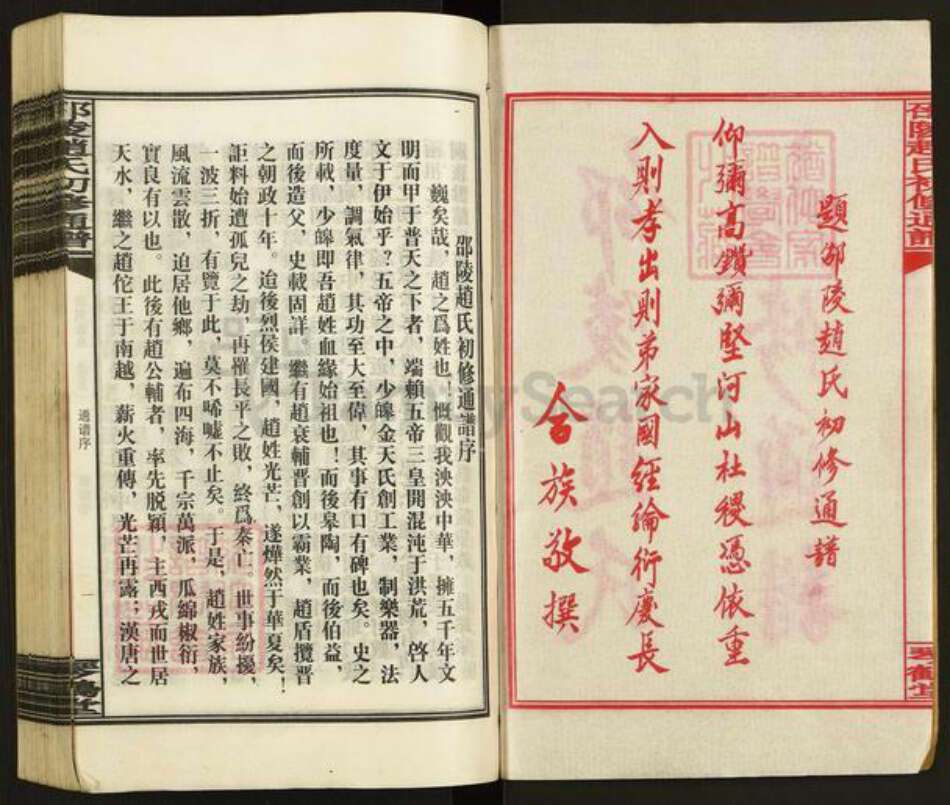 邵陵趙氏初修通譜
題邵陵趙氏初修通譜
仰彌高鑽彌堅河山社稷憑依重
入則孝出則弟家國經綸衍慶長
合族敬撰
琴鶴堂
邵陵趙氏初修通譜序
巍矣哉，趙之爲姓也！慨觀我泱泱中華，擁五千年文
明而甲于普天之下者，端賴五帝三皇開混沌于洪荒，啓人
文于伊始乎？五帝之中，少皞金天氏創工業，制樂器，法
度量，調氣律，其功至大至偉，其事有口有碑也矣。史之
所載，少皞即吾趙姓血緣始祖也！而後皋陶，而後伯益，
而後造父，史載固詳。繼有趙衰輔晋創以霸業，趙盾攬晋
之朝政十年。迨後烈侯建國，趙姓光芒，遂燁然于華夏矣！
詎料始遭孤兒之劫，再罹長平之敗，終爲秦亡。世事紛擾，
一波三折，有覽于此，莫不唏噓不止矣。于是，趙姓家族，
風流雲散，迫居他鄉，遍布四海，千宗萬派，瓜綿椒衍，
實良有以也。此後有趙公輔者，率先脱穎，主西戎而世居
天水，繼之趙佗王于南越，薪火重傳，光芒再露；漢唐之
邵陵趙氏初修通譜
通譜序
一
琴鶴堂
FamilySearch